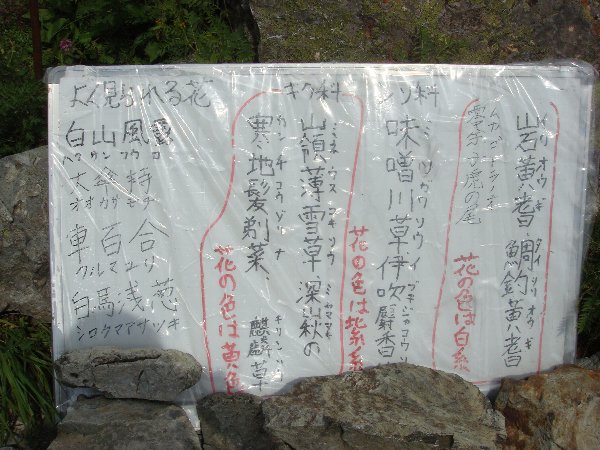 イワオウギ タイツリオウギ
岩黄耆 鯛釣黄耆
ムカゴトラノオ
零余子虎の尾
花の色は白系
シソ科
ミソガワソウ イブキジャコウソ
味噌川草 伊吹麝香
花の色は紫系
キク科
ミネウスユキソウ ミヤマ
嶺薄雪草 深山秋の
カンチコウゾリナ キリンソ
寒地髪剃菜 麒麟草
花の色は黄色
よく見られる花
白山風露
ハクサンフウロ
大傘持
オオカサモチ
車百合
クルマユリ
白馬浅葱
シロウマアサツキ